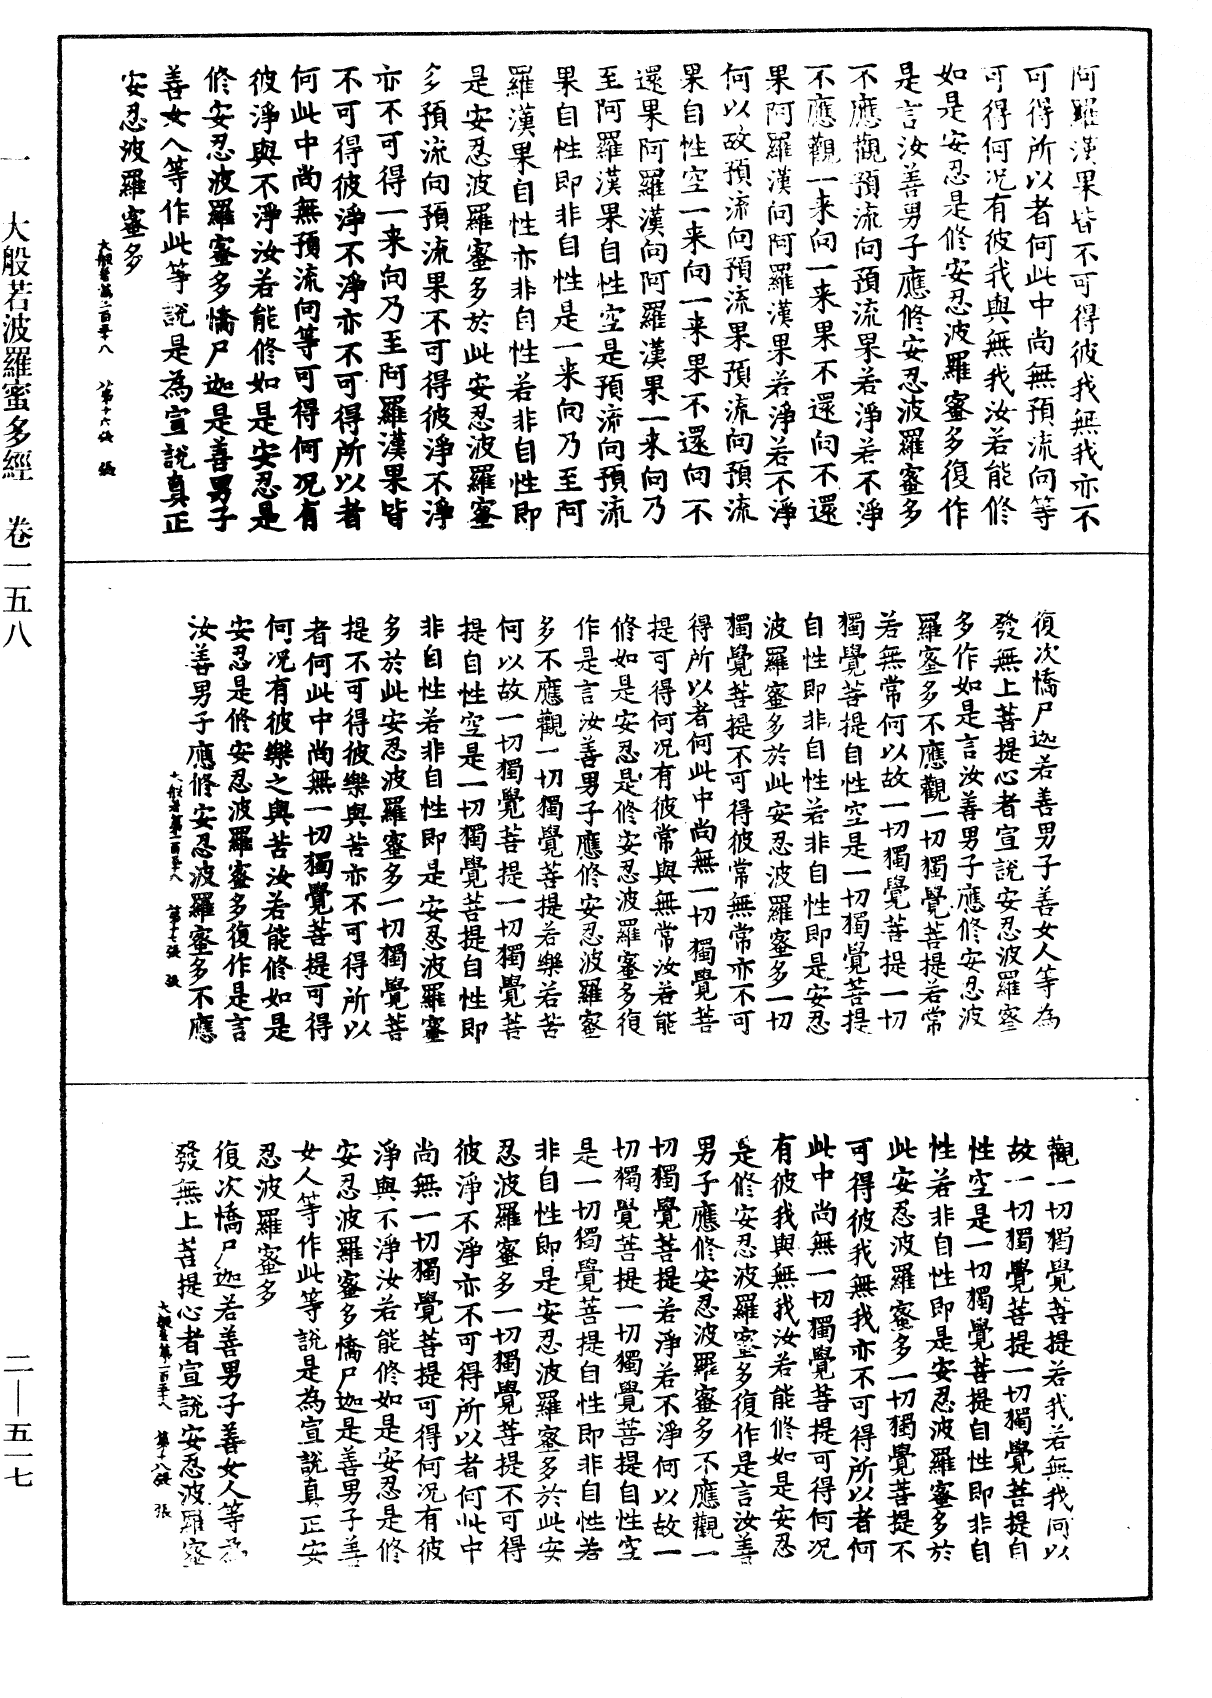 阿羅漢果皆不可得彼我無我亦不
可得所以者何此中尚無預流向等
可得何況有彼我與無我汝若能修
如是安忍是修安忍波羅蜜多復作
是言汝善男子應修安忍波羅蜜多
不應觀預流向預流果若淨若不淨
不應觀一来向一来果不還向不還
果阿羅漢向阿羅漢果若淨若不淨
何以故預流向預流果預流向預流
果自性空一来向一来果不還向不
還果阿羅漢向阿羅漢果一来向乃
至阿羅漢果自性空是預流向預流
果自性即非自性是一来向乃至阿
羅漢果自性亦非自性若非自性即
是安忍波羅蜜多於此安忍波羅蜜
多預流向預流果不可得彼淨不淨
亦不可得一来向乃至阿羅漢果皆
不可得彼淨不淨亦不可得所以者
何此中尚無預流向等可得何況有
彼淨與不淨汝若能修如是安忍是
修安忍波羅蜜多憍尸迦是善男子
善女人等作此等說是為宣說真正
安忍波羅蜜多
大般若第一百五十八 第十六張 張
復次憍尸迦若善男子善女人等為
發無上菩提心者宣說安忍波羅蜜
多作如是言汝善男子應修安忍波
羅蜜多不應觀一切獨覺菩提若常
若無常何以故一切獨覺菩提一切
獨覺菩提自性空是一切獨覺菩提
自性即非自性若非自性即是安忍
波羅蜜多於此安忍波羅蜜多一切
獨覺菩提不可得彼常無常亦不可
得所以者何此中尚無一切獨覺菩
提可得何況有彼常與無常汝若能
修如是安忍是修安忍波羅蜜多復
作是言汝善男子應修安忍波羅蜜
多不應觀一切獨覺菩提若樂若苦
何以故一切獨覺菩提一切獨覺菩
提自性空是一切獨覺菩提自性即
非自性若非自性即是安忍波羅蜜
多於此安忍波羅蜜多一切獨覺菩
提不可得彼樂與苦亦不可得所以
者何此中尚無一切獨覺菩提可得
何況有彼樂之與苦汝若能修如是
安忍是修安忍波羅蜜多復作是言
汝善男子應修安忍波羅蜜多不應
大般若第一百五十八 第十七張 張
觀一切獨覺菩提若我若無我何以
故一切獨覺菩提一切獨覺菩提自
性空是一切獨覺菩提自性即非自
性若非自性即是安忍波羅蜜多於
此安忍波羅蜜多一切獨覺菩提不
可得彼我無我亦不可得所以者何
此中尚無一切獨覺菩提可得何況
有彼我與無我汝若能修如是安忍
是修安忍波羅蜜多復作是言汝善
男子應修安忍波羅蜜多不應觀一
切獨覺菩提若淨若不淨何以故一
切獨覺菩提一切獨覺菩提自性空
是一切獨覺菩提自性即非自性若
非自性即是安忍波羅蜜多於此安
忍波羅蜜多一切獨覺菩提不可得
彼淨不淨亦不可得所以者何此中
尚無一切獨覺菩提可得何況有彼
淨與不淨汝若能修如是安忍是修
安忍波羅蜜多憍尸迦是善男子善
女人等作此等說是為宣說真正安
忍波羅蜜多
復次憍尸迦若善男子善女人等為
發無上菩提心者宣說安忍波羅蜜
大般若第一百五十八 第十八張 張
一 大般若波羅蜜多經 卷一五八
二—五一七